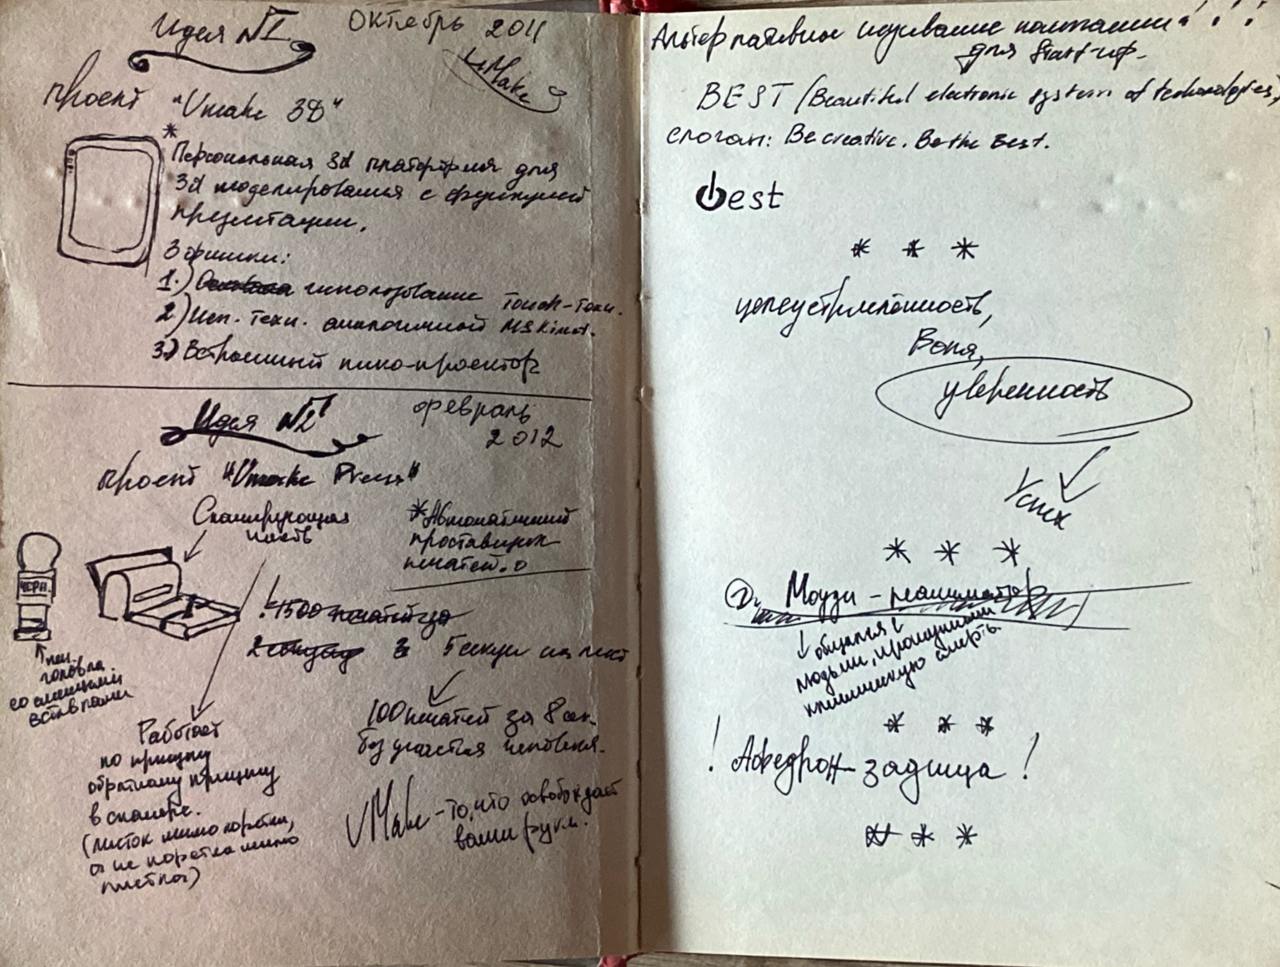 Идея №1
Октябрь 2011
VMake
проект "Vmake 3D"
* Персональная 3d платформа для
3d моделирования с функцией
презентации.
3 фишки:
1.) использование Touch-техн.
2) Исп. техн. аналогичной MS Kinect.
3) Встроенный пико-проектор
Идея №2
февраль
2012
проект "Vmake Press"
Сканирующая
часть
* Автоматический
проставщик
печатей.
ЧЕРН.
печ.
головка
со сменными
вставками
! 1500 печатей за
2 секунды 5 секун на лист
100 печатей за 8 сек.
без участия человека.
Работает
по принципу
обратному принципу
в сканере.
(листок мимо коретки,
а не коретка мимо
листка)
VMake - то, что освобождает
ваши руки.
Альтернативное название компании!!!
для Start-up.
BEST (Beautiful electronic system of technologies)
слоган: Be creative. Be the Best.
best
* * *
целеустремлённость,
Воля,
уверенность
Успех
* * *
Моуди - реаниматор
общался с
людьми, прошедшими
клиническую смерть.
* * *
! Афедрон - задница !
* * *